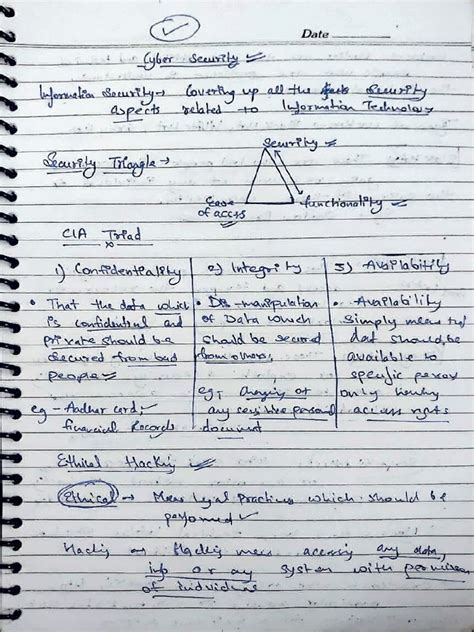 Date
Cyber Security
Information Security → Covering up all the Security
aspects related to Information Technology
Security Triangle →
Security
Ease
of access
functionality
CIA Triad
1) Confidentiality
• That the data which
is confidential and
private should be
secured from bad
people
eg - Aadhar card,
financial Records
2) Integrity
• manipulation
of Data which
should be secured
from others,
eg, changing of
any sensitive personal
document
3) Availability
• Availability
Simply means
should be
available to
specific person
only having
access rights
Ethical Hacking
Ethical → Means legal Practices which should be
performed
Hacking → Hacking means accessing any data,
info or any system with permission
of individual